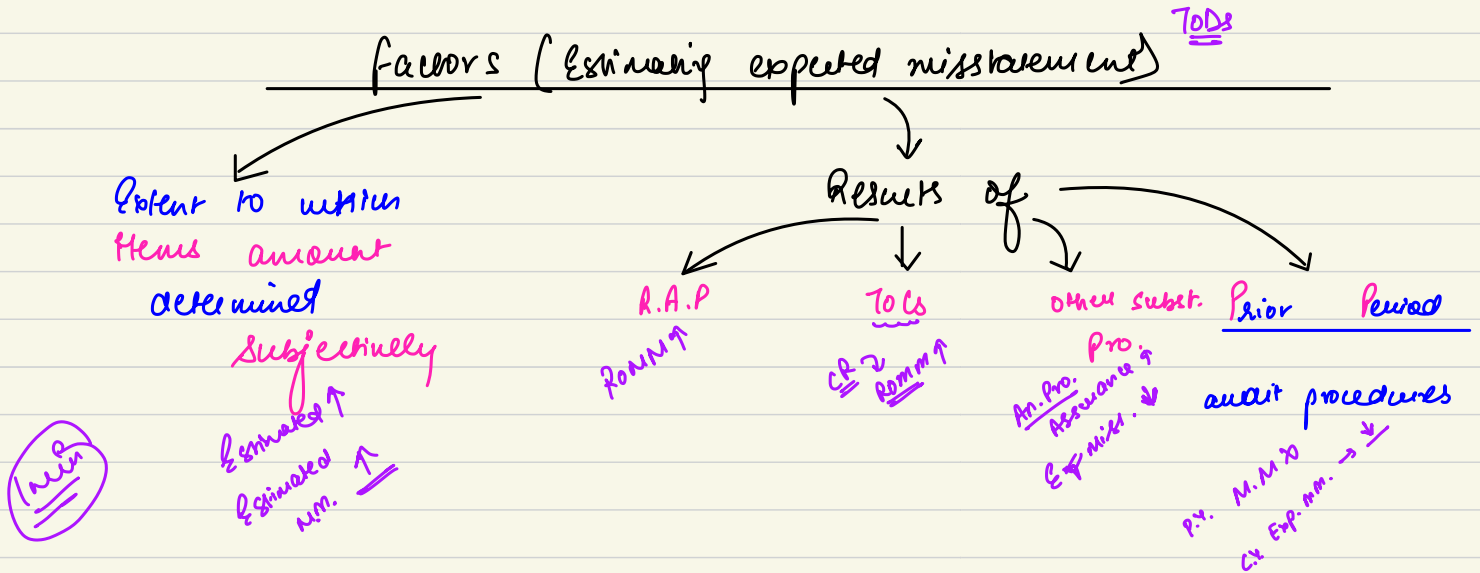 TODs
Factors (Estimating expected misstatement)
Extent to which
Items amount
determined
Subjectively
Estimated ↑
Estimated ↑
M.M.
Results of
R.A.P
ROMM ↑
TOCs
CR
ROMM ↑
other subst.
Pro.
An. Pro.
Assurance ↑
Exp Miss. ↓
Prior Period
audit procedures
P.Y. M.M
C.Y. Exp. MM. → ↓